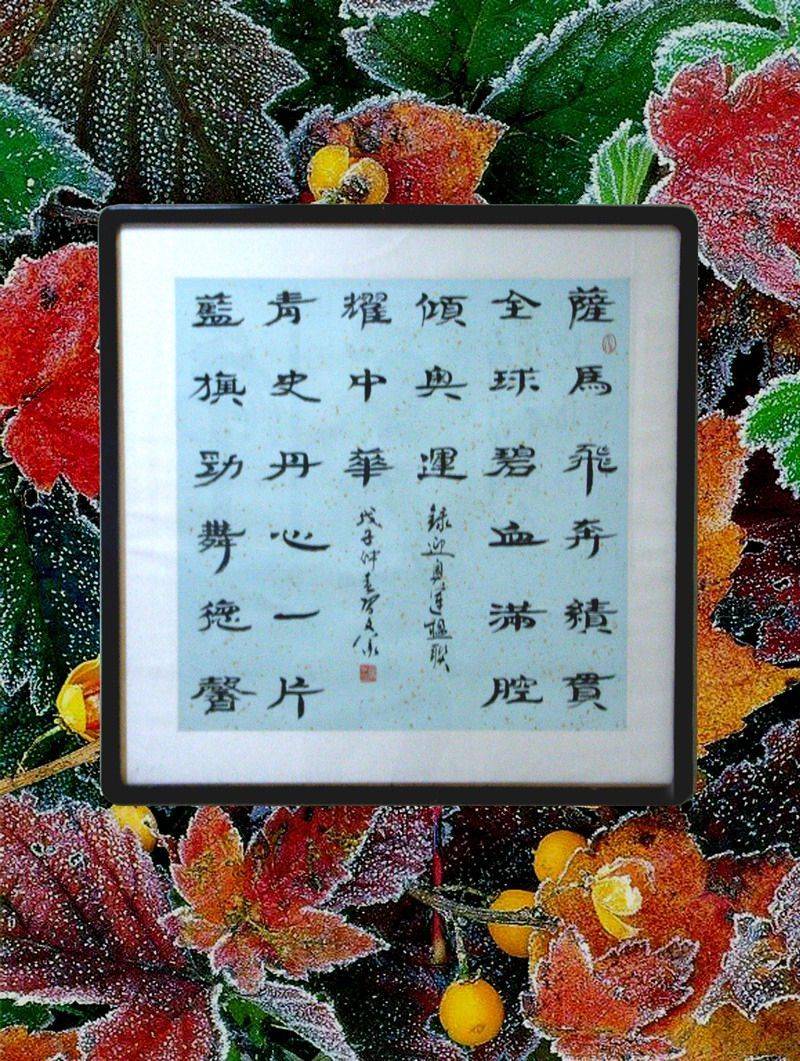 薩馬飛奔績貫
全球碧血滿腔
傾奧運
錄迎奧運楹聯
藍旗勁舞德馨
青史丹心一片
耀中華
戊子仲春